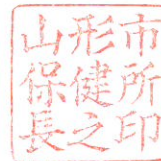 山形市
保健所
長之印